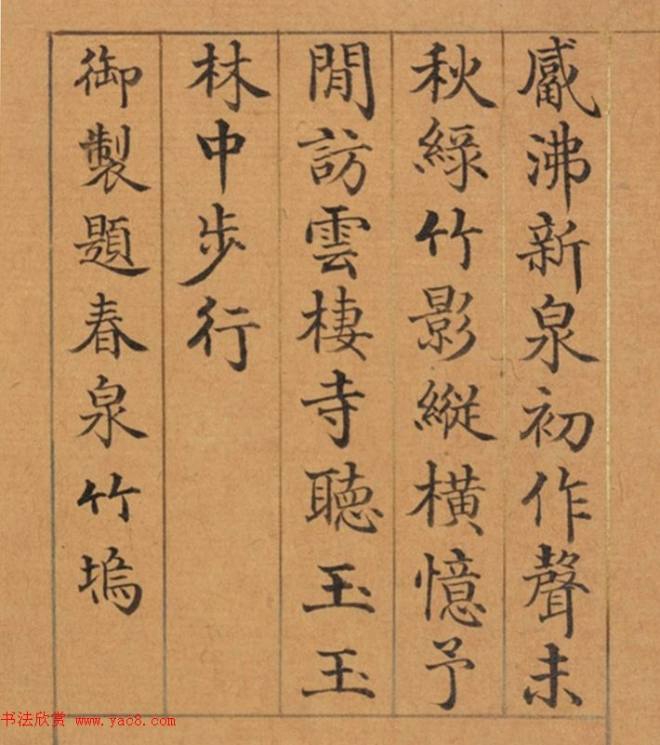 觱沸新泉初作聲未
秋綠竹影縱橫憶予
閒訪雲棲寺聽玉玉
林中步行
御製題春泉竹塢
书法欣赏 www.yac8.com